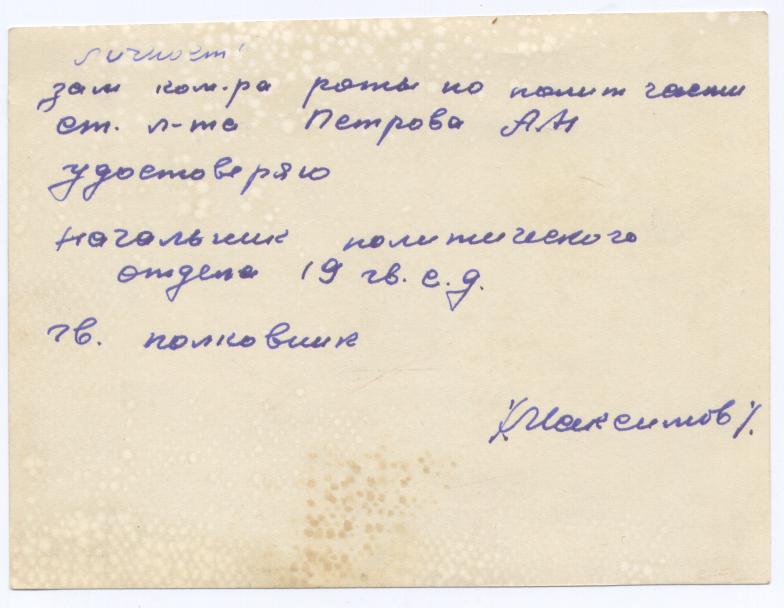 личност
зам ком.ра роты по полит части
ст. л-та Петрова А.Н
удостоверяю
начальник политического
отдела 19 гв. с.д.
гв. полковник
/Максимов/.